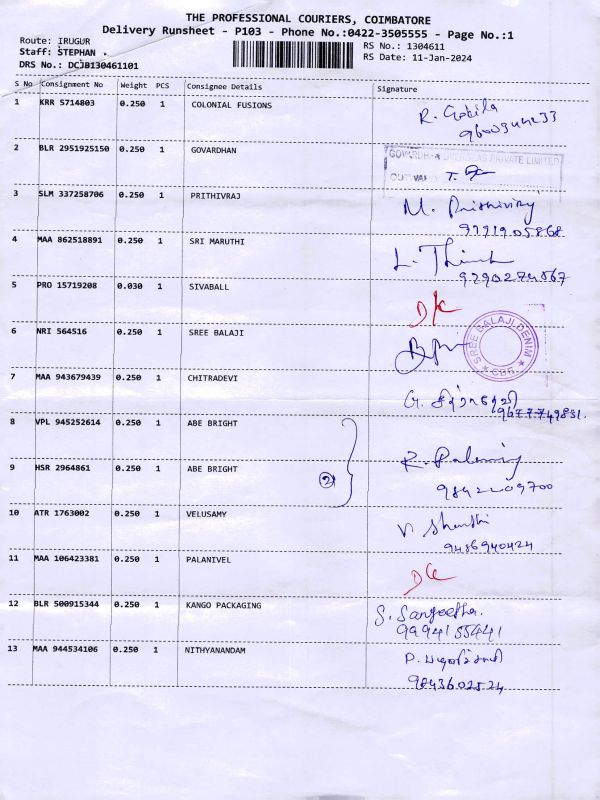 THE PROFESSIONAL COURIERS, COIMBATORE
Delivery Runsheet - P103 - Phone No.:0422-3505555 - Page No.:1
Route: IRUGUR
RS No.: 1304611
Staff: STEPHAN .
RS Date: 11-Jan-2024
DRS No.: DCJB130461101
S No Consignment No Weight PCS Consignee Details Signature
1 KRR 5714803 0.250 1 COLONIAL FUSIONS
2 BLR 2951925150 0.250 1 GOVARDHAN
3 SLM 337258706 0.250 1 PRITHIVRAJ M. Prithiviraj
4 MAA 862518891 0.250 1 SRI MARUTHI
5 PRO 15719208 0.030 1 SIVABALL
6 NRI 564516 0.250 1 SREE BALAJI SREE BALAJI DENIM CBE
7 MAA 943679439 0.250 1 CHITRADEVI
8 VPL 945252614 0.250 1 ABE BRIGHT
9 HSR 2964861 0.250 1 ABE BRIGHT 2
10 ATR 1763002 0.250 1 VELUSAMY V Shanthi
9486940424
11 MAA 106423381 0.250 1 PALANIVEL
12 BLR 500915344 0.250 1 KANGO PACKAGING S. Sangeetha.
9994155441
13 MAA 944534106 0.250 1 NITHYANANDAM
9843602524